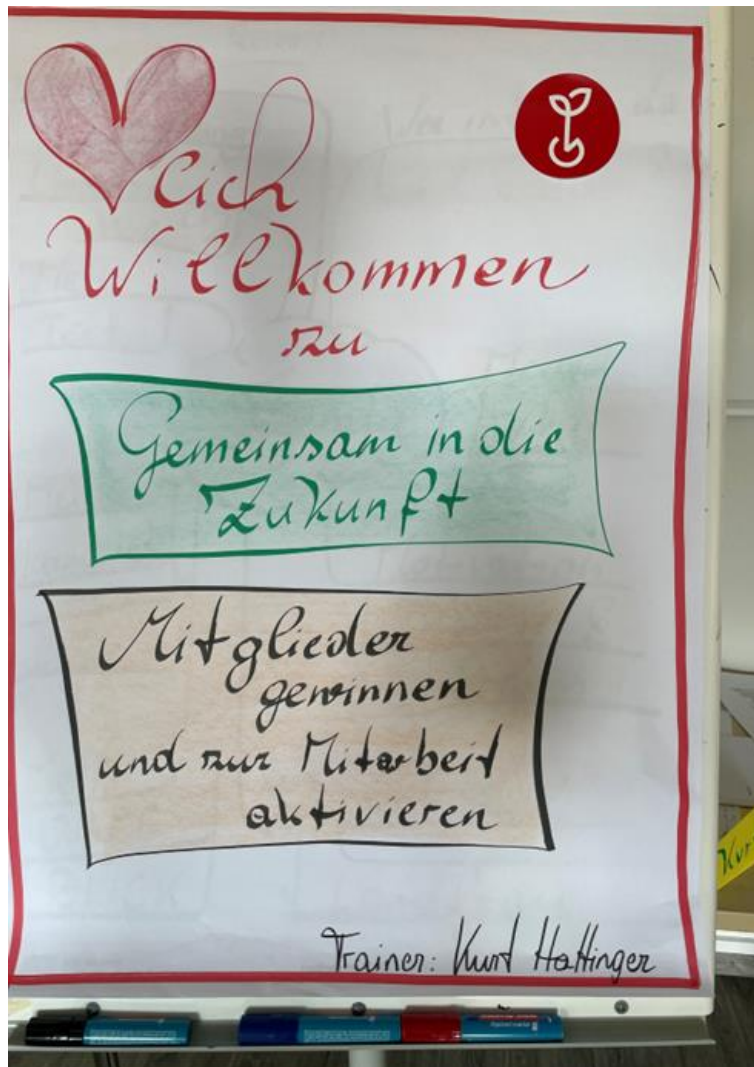 lich
Willkommen
zu
Gemeinsam in die
Zukunft
Mitglieder
gewinnen
und zur Mitarbeit
aktivieren
Trainer: Kurt Hattinger